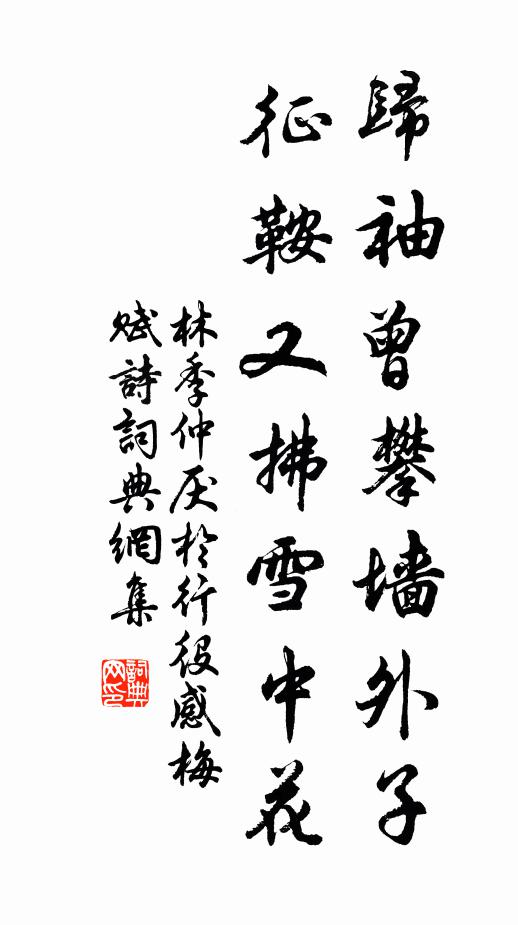 歸袖曾攀墙外子
征鞍又拂雪中花
林季仲厌於行役感梅
赋詩詞典網集
詞典网印